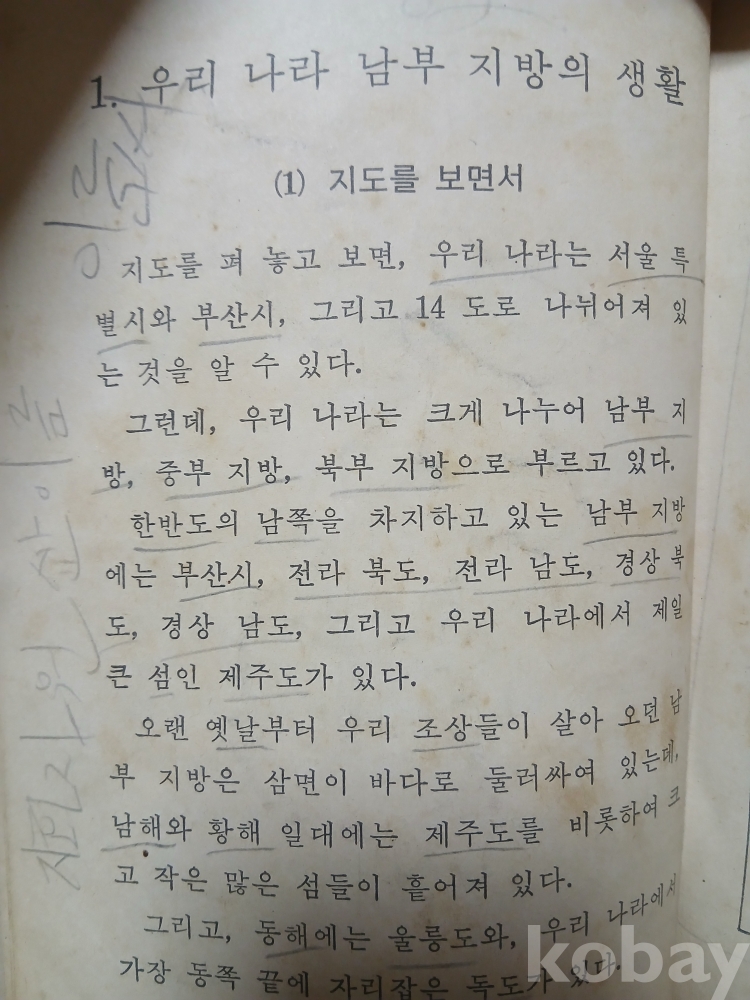 1. 우리 나라 남부 지방의 생활
(1) 지도를 보면서
지도를 펴 놓고 보면, 우리 나라는 서울 특
별시와 부산시, 그리고 14 도로 나뉘어져 있
는 것을 알 수 있다.
그런데, 우리 나라는 크게 나누어 남부 지
방, 중부 지방, 북부 지방으로 부르고 있다.
한반도의 남쪽을 차지하고 있는 남부 지방
에는 부산시, 전라 북도, 전라 남도, 경상 북
도, 경상 남도, 그리고 우리 나라에서 제일
큰 섬인 제주도가 있다.
오랜 옛날부터 우리 조상들이 살아 오던 남
부 지방은 삼면이 바다로 둘러싸여 있는데,
남해와 황해 일대에는 제주도를 비롯하여 크
고 작은 많은 섬들이 흩어져 있다.
그리고, 동해에는 울릉도와, 우리 나라에서
가장 동쪽 끝에 자리잡은 독도가 있다.
kobay